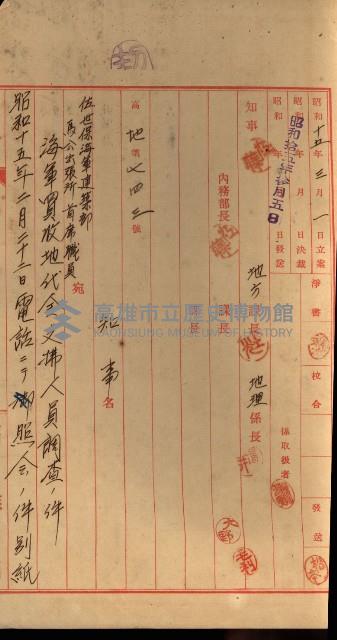 昭和十五年三月一日立案
昭和 年 月 日決裁
昭和 年 月 日發送
昭和拾五年 月五日
淨書
校合
發送
係取扱者
知事
內務部長
地方課長
課長
課長
地理係長
大野
高地第七四三號
知事名
佐世保海軍建築部
馬公出張所首席職員 宛
海軍買收地代金支拂人員調查ノ件
昭和十五年二月二十二日電話ニテ御照會ノ件別紙
高雄市立歷史博物館
KAOHSIUNG MUSEUM OF HISTORY